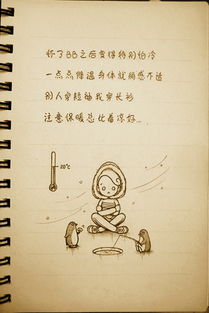 怀了BB之后变得特别怕冷
一点点降温身体就倍感不适
别人穿短袖我穿长衫
注意保暖总比着凉好...
20℃